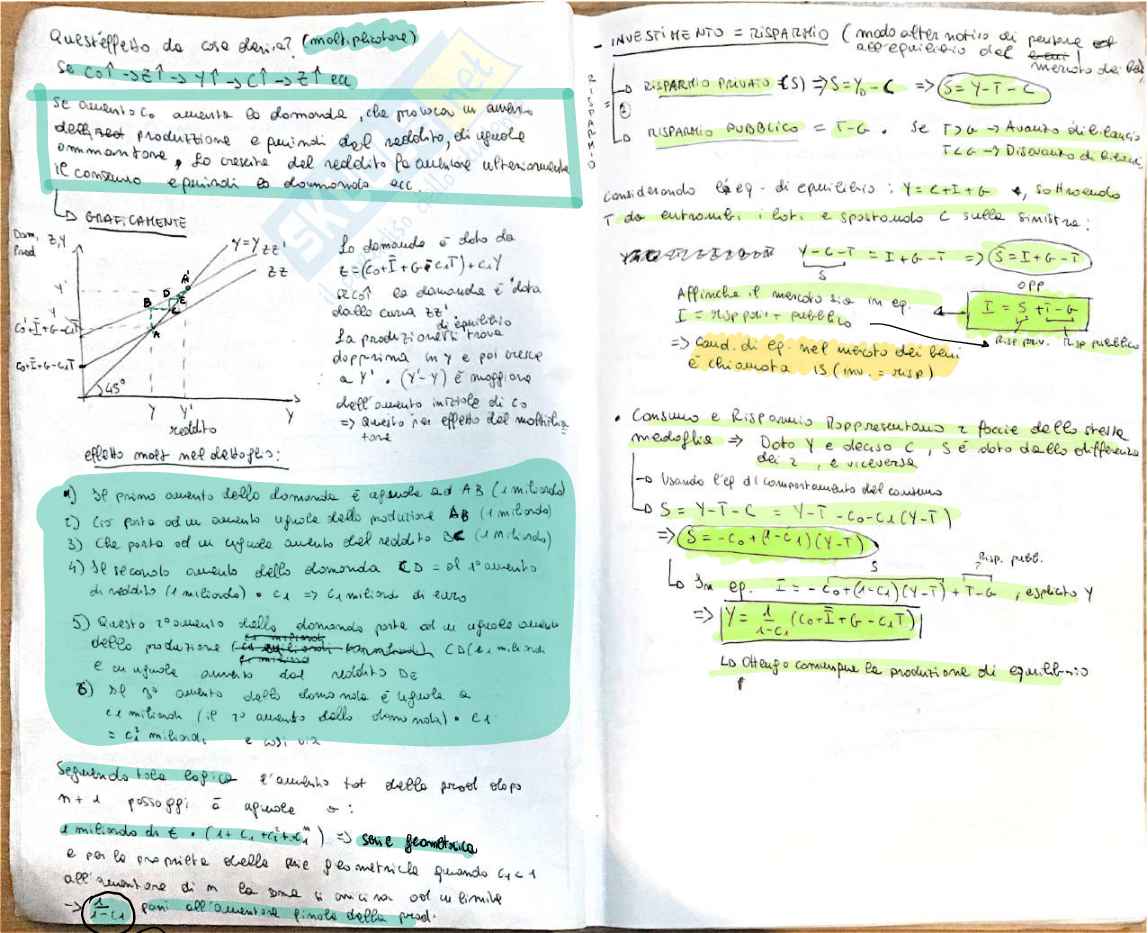 Quest'effetto da cosa deriva? (moltiplicatore)
Se C0↑ → Z↑ → Y↑ → C↑ → Z↑ ecc
Se aumento C0 aumenta la domanda, che provoca un aumento
della produzione e quindi del reddito, di uguale
ammontare, la crescita del reddito fa aumentare ulteriormente
il consumo e quindi la domanda ecc.
↳ GRAFICAMENTE
Dom, Prod
Z,Y
Y=Y
ZZ'
ZZ
Y'
Y
C0'+Ī+G-C1T
C0+Ī+G-C1T
A'
D
E
B
C
A
45°
Y
Y'
Y
reddito
La domanda è data da
Z=(C0+Ī+G-C1T)+C1Y
Se C0↑ la domanda è data
dalla curva ZZ'
La produzione di equilibrio si trova
dapprima in Y e poi cresce
a Y'. (Y'-Y) è maggiore
dell'aumento iniziale di C0
=> Questo per effetto del moltiplicatore
effetto molt nel dettaglio:
1) Il primo aumento della domanda è uguale ad AB (1 miliardo)
2) Ciò porta ad un aumento uguale della produzione AB (1 miliardo)
3) Che porta ad un uguale aumento del reddito BC (1 miliardo)
4) Il secondo aumento della domanda CD = al 1° aumento
di reddito (1 miliardo) • C1 => C1 miliardi di euro
5) Questo 2° aumento della domanda porta ad un uguale aumento
della produzione CD (C1 miliardi
e un uguale aumento del reddito DE
6) Il 3° aumento della domanda è uguale a
C1 miliardi (il 2° aumento della domanda) • C1
= C1² miliardi e così via
Seguendo tale logica l'aumento tot della prod dopo
n+1 passaggi è uguale a:
1 miliardo di € • (1+C1+C1²+..C1ⁿ) => serie geometrica
e per la proprietà delle serie geometriche quando C1<1
all'aumentare di n la somma si avvicina ad un limite
→ 1/1-C1 pari all'aumentare finale della prod.
- INVESTIMENTO = RISPARMIO (modo alternativo di pensare
all'equilibrio del mercato dei beni)
RISPARMIO
↳ RISPARMIO PRIVATO (S) => S=YD-C => S=Y-T-C
↳ RISPARMIO PUBBLICO = T-G. Se T>G → Avanzo di bilancio
T<G → Disavanzo di bilancio
Considerando l'eq. di equilibrio: Y=C+I+G, sottraendo
T da entrambi i lati e spostando C sulla sinistra:
Y-C-T = I+G-T => S=I+G-T
S
OPP
Affinche il mercato sia in eq.
I = S + T-G
I = risp priv + pubblico
Risp priv. Risp pubblico
=> Cond. di eq. nel mercato dei beni
è chiamata IS (inv. = risp)
• Consumo e Risparmio Rappresentano 2 facce della stessa
medaglia => Dato Y e deciso C, S è dato dalla differenza
dei 2, e viceversa
→ Usando l'eq di comportamento del consumo
↳ S = Y-T-C = Y-T-C0-C1(Y-T)
=> S=-C0+(1-C1)(Y-T)
S
Risp. pubb.
↳ In eq. I = -C0+(1-C1)(Y-T)+T-G, esplicito Y
=> Y = 1/1-C1 (C0+Ī+G-C1T)
↳ Ottengo comunque la produzione di equilibrio